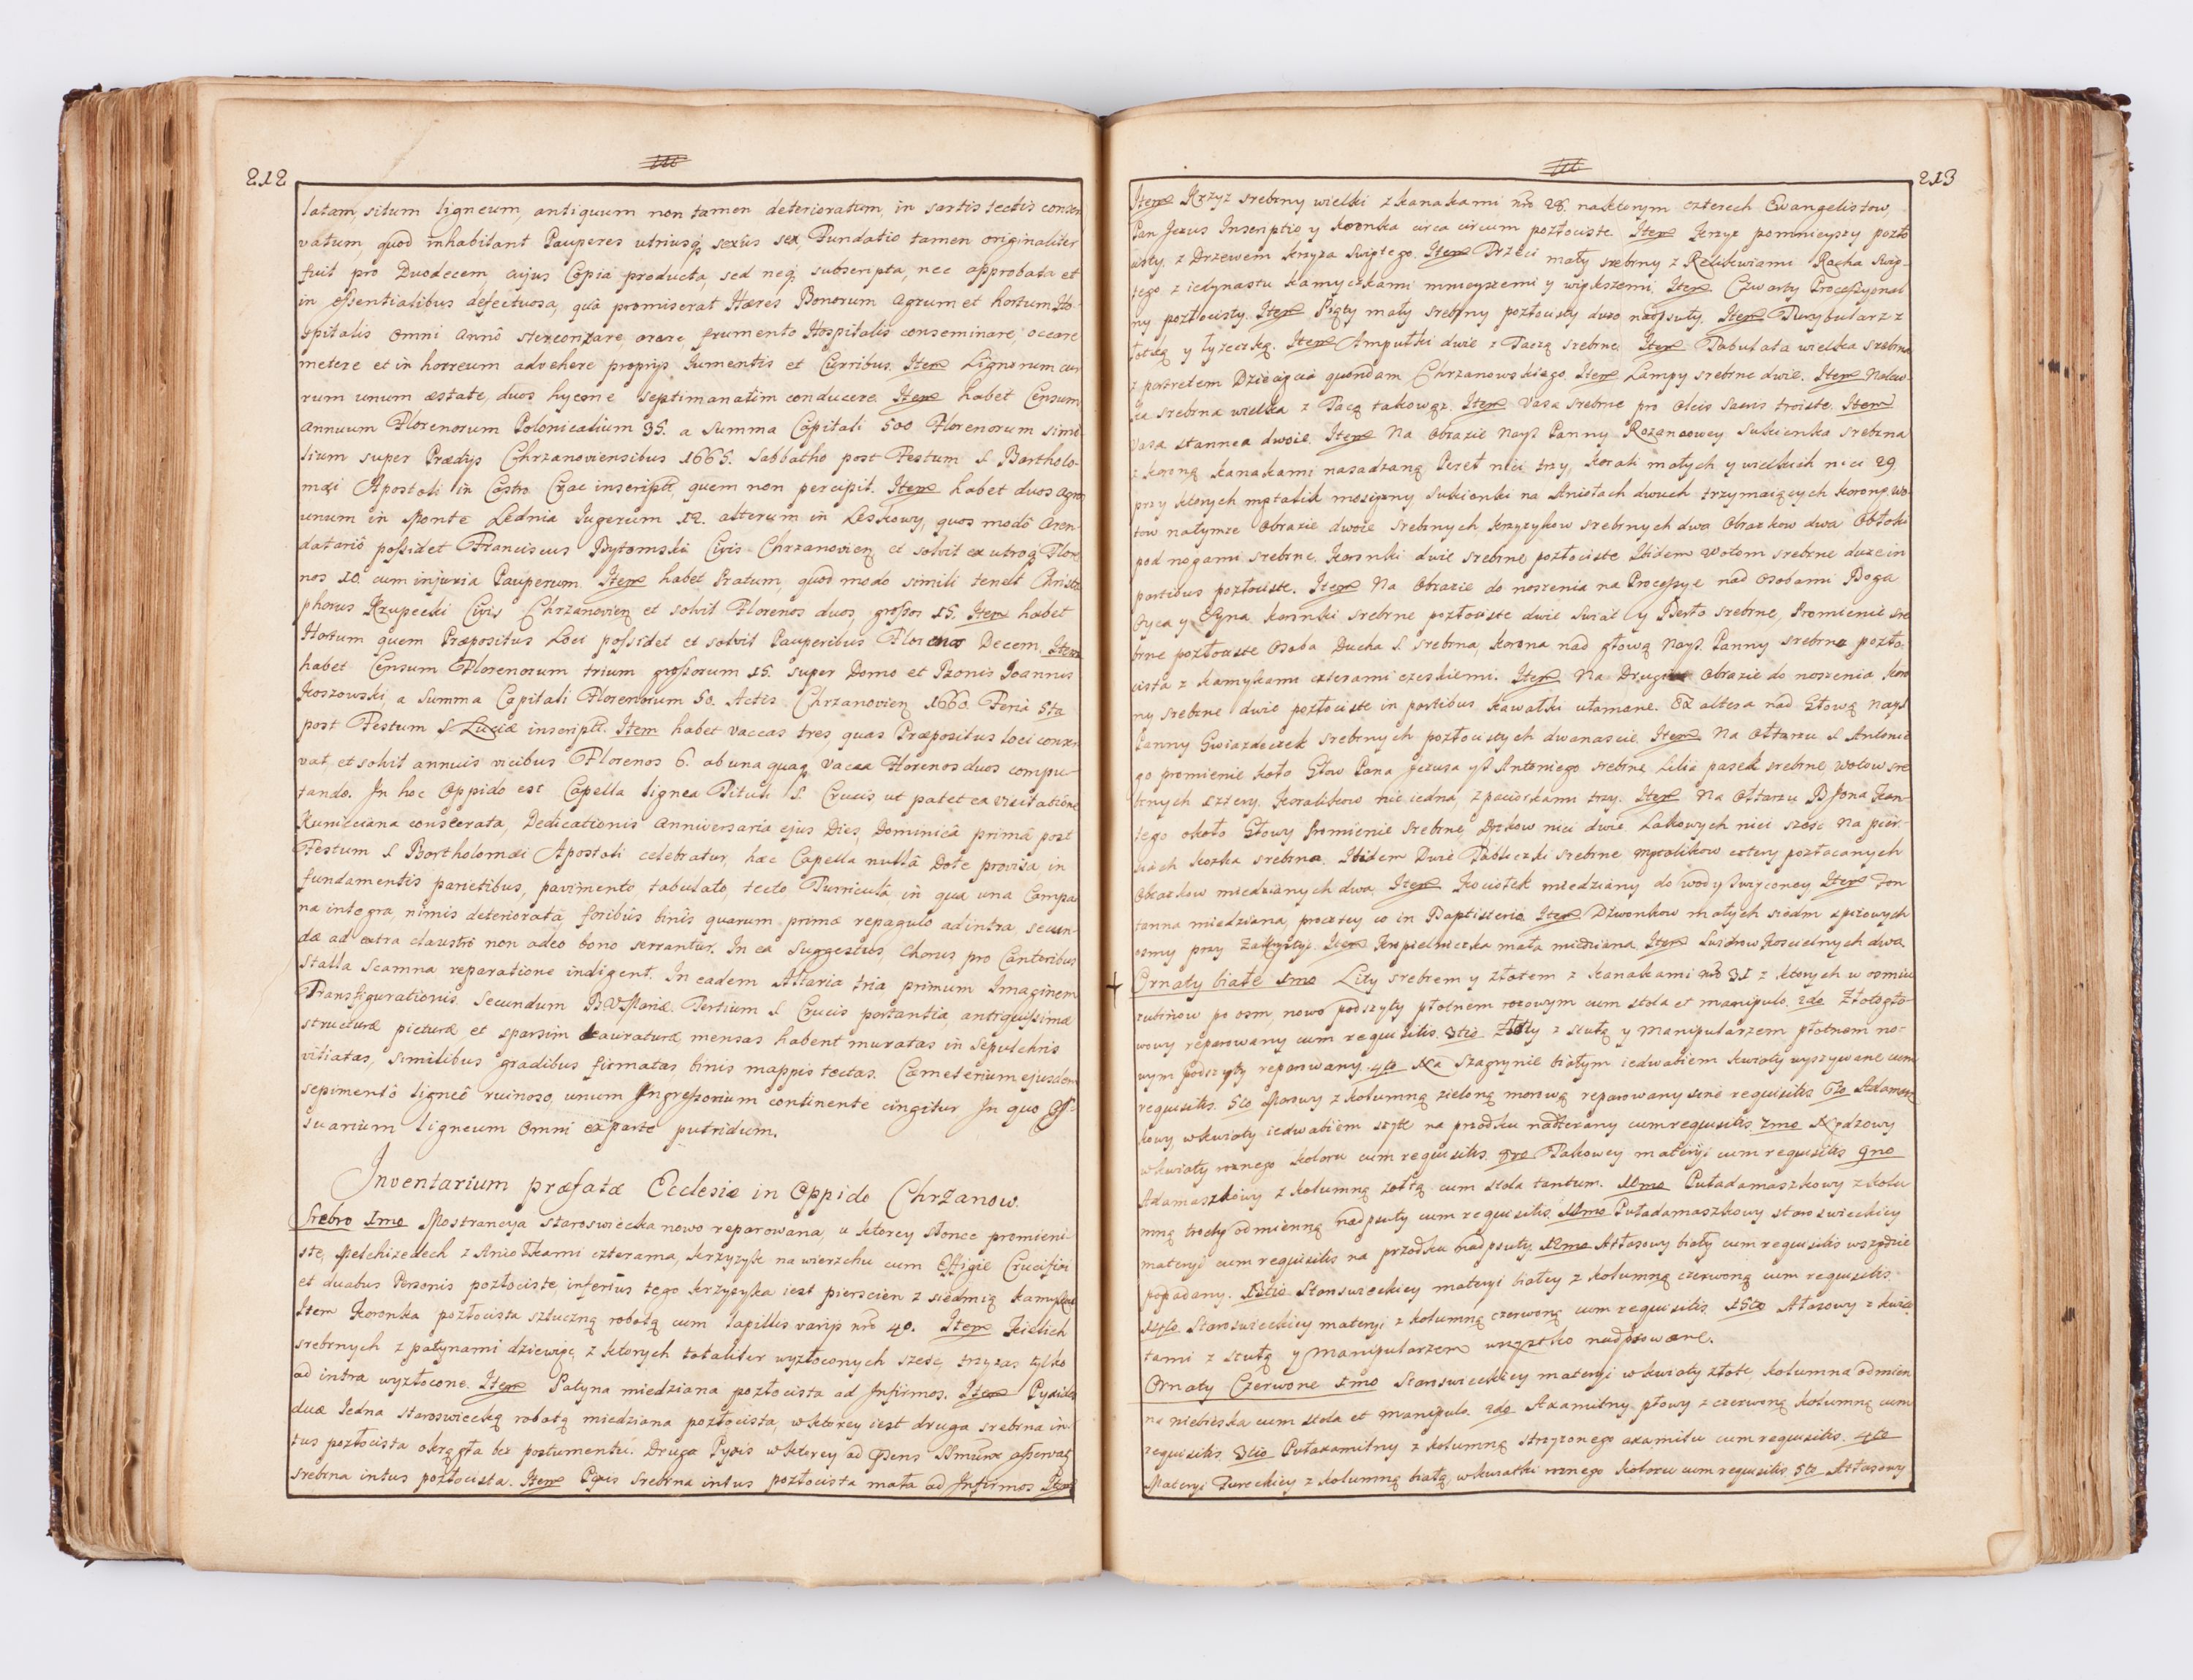 212
latam, situm ligneum, antiquum non tamen deterioratum, in sartis tectis conser
vatum, quod inhabitant Pauperes utriusq; sexus sex Fundatio tamen originaliter
fuit pro Duodecem, cujus Copia producta, sed neq; subscripta, nec approbata et
in essentialibus defectuosa, quia promiserat Hæres Bonorum agrum et hortum Ho-
spitalis omni annô stercorizare, arare, frumento Hospitalis conseminare, occare
metere et in horreum advehere proprijs Jumentis et Curribus. Item Lignorum cur
rum unum æstate, duos hyeme septimanatim conducere. Item habet Censum
annuum Florenorum Polonicalium 35. a Summa Capitali 500 Florenorum simi
lium super Prædijs Chrzanoviensibus 1665. Sabbatho post Festum S. Bartholo-
mæi Apostoli in Castro inscript, quem non percipit. Item habet duos agros
unum in Monte Lednia Jugerum 12. alterum in Leskowy, quos modô Aren
datariô possidet Franciscus Bytomski Civis Chrzanovien et solvit ex utroq; Flore
nos 10. cum injuria Pauperum. Item habet Pratum, quod modo simili tenet Christo
phorus Krupecki Civis Chrzanovien et solvit Florenos duos, grossos 15. Item habet
Hortum quem Præpositus Loci possidet et solvit Pauperibus Florenos Decem. Item
habet Censum Florenorum trium grossorum 15. super Domo et Bonis Joannis
Koszowski, a Summa Capitali Florenorum 50. Actis Chrzanovien 1660. Feria 5ta
post Festum S. Luciæ inscript. Item habet vaccas tres, quas Præpositus loci conser
vat, et solvit annuis vicibus Florenos 6. ab una quaq; vacca Florenos duos compu-
tando. In hoc Oppido est Capella lignea Tituli S. Crucis, ut patet ex visitatione
Kunicciana consecrata, Dedicationis anniversaria ejus Dies, Dominicâ primâ post
Festum S. Bartholomæi Apostoli celebratur, hæc Capella nullâ Dote provisa, in
fundamentis parietibus, pavimento, tabulato, tecto Turriculâ, in qua una Campa
na integra, nimis deteriorata, foribus binis quarum primæ repagulo ad intra, secun-
dæ ad extra claustrô non adeo bono serrantur. In ea Suggestus, Chorus pro Cantoribus
Stalla Scamna reparatione indigent. In eadem Altaria tria primum Imaginem
Transfigurationis. Secundum B.V.Mariæ. Tertium S. Crucis portantia, antiquissimæ
structuræ picturæ et sparsim deauraturæ mensas habent muratas in Sepulchris
vitiatas, similibus gradibus firmatas, binis mappis tectas. Cæmeterium ejusdem
sepimentô ligneô ruinoso, unum Ingressorium continente cingitur. In quo Os-
suarium ligneum omni ex parte putridum.
Inventarium præfatæ Ecclesiæ in Oppido Chrzanow.
Srebro 1mo Mostrancya staroswiecka nowo reparowana, u ktorey słonce promieni-
ste, Melchizedech z Aniołkami czterama, krzyzyk na wierzchu cum Effigie Crucifixi
et duabus Personis pozłociste, inferius tego krzyzyka iest pierscien z siedmią kamykami
Item Koronka pozłocista sztuczną robotą cum lapillis varijs nro 40. Item Kielich
srebrnych z patynami dziewięc, z ktorych totaliter wyzłoconych szesc, trzy zas tylko
ad intra wyzłocone. Item Patyna miedziana pozłocista ad Infirmos. Item Pyxides
duæ Jedna staroswiecką robotą miedziana pozłocista, w ktorey iest druga srebrna in-
tus pozłocista okrągła bez postumentu. Druga Pyxis w ktorey ad præsens asservat
srebrna intus pozłocista. Item Pyxis srebrna intus pozłocista mała ad Infirmos Item
213
Item Krzyz srebrny wielki z kanakami nro 28. na ktorym czterech Ewangelistow,
Pan Jezus Inscriptio y koronka circa circum pozłociste. Item Krzyz pomnieyszy pozło
cisty, z Drzewem krzyza Swiętego. Item Trzeci mały srebrny z Relikwiami Rocha Swię-
tego z iedynastu kamyczkami mnieyszemi y większemi. Item Czwarty Processyonal
ny pozłocisty. Item Piąty mały srebrny pozłocisty duzo nadpsuty. Item Turybularz z
łotką y łyzeczką. Item Ampułki dwie z Taczą srebrne. Item Tabulata wielka srebrna
z portretem Dziecięcia quondam Chrzanowskiego. Item Lampy srebrne dwie. Item Nalew-
ka srebrna wielka z Tacą takową. Item Vasa srebrne pro oleis sacris troiste. Item
Vasa stannea dwoie. Item Na obrazie Nays Panny Rozancowey Sukienka srebrna
z koroną kanakami nasadzaną Pereł nici trzy, korali małych y wielkich nici 29
przy ktorych mętalik mosięzny Sukienki na Aniołach dwuch trzymaiących koronę, wo
tow na tymze obrazie dwoie srebrnych, krzyzykow srebrnych dwa obrazkow dwa obłoki
pod nogami srebrne, koronki dwie srebrne, pozłociste Ibidem wotom srebrne duze in
partibus pozłociste. Item Na obrazie do noszenia na Processye nad osobami Boga
Oyca y Syna koronki srebrne pozłociste dwie Swiat y Berło srebrne, Promienie sre
brne pozłociste osoba Ducha S. srebrna, korona nad głową Nays. Panny srebrna pozło
cista z kamykami czterami czeskiemi. Item Na Drugim obrazie do noszenia koro
ny srebrne dwie pozłociste in partibus kawałki ułamane. altera nad Głową Nays
Panny Gwiazdeczek srebrnych pozłocistych dwanascie. Item Na ołtarzu S. Antonie
go promienie koło Głow Pana Jezusa y S Antoniego srebrne, Lilia pasek srebrne, wotow sre
brnych cztery, koralikow nic iedna, z paciorkami trzy. Item Na Ołtarzu B Jona Kan-
tego około Głowy promienie srebrne, nici dwie Lakowych nici szesc na pier-
siach kozka srebrna. Ibidem Dwie Tabliczki srebrne mętalikow cztery pozłacanych
obrazkow miedzianych dwa. Item Kociołek miedziany do wody swięconey Item Fon
tanna miedziana, procz tey co in Baptisterio. Item Dzwonkow małych siedm spizowych
osmy przy Zakrystyi. Item Kropielniczka mała miedziana Item Kościelnych dwa
Ornaty białe 1mo Lity srebrem y złotem z kanakami nro 31 z ktorych w osmiu
rubinow po osm, nowo podszyty płotnem rozowym cum stola et manipulo. 2do Złotogło-
wowy reparowany cum requisitis. 3tio Złoty z stułą y manipularzem płotnem no-
wym podszyty reparowany. 4to Na Szagrynie białym iedwabiem kwiaty wyszywane cum
requisitis. 5to Morowy z kolumną zieloną morową reparowany sine requisitis 6to Adamasz
kowy w kwiaty iedwabiem szyte na przodku nadterany cum requisitis. 7mo Nędzowy
w kwiaty roznego koloru cum requisitis. 8vo Takowey materyi cum requisitis 9no
Adamaszkowy z kolumną zołtą cum stola tantum. 10mo Puładamaszkowy z kolu
mną trochę odmienną nadpsuty cum requisitis. 11mo Puładamaszkowy staroswieckiey
materyi cum requisitis na przodku nadpsuty. 12mo Atłasowy biały cum requisitis wszędzie
popadany. 13tio Staroswieckiey materyi białey z kolumną czerwoną cum requisitis.
14to Staroswieckiey materyi z kolumną czerwoną cum requisitis. 15to Atłasowy z kwia
tami z stułą y Manipularzem wszystko nadpsowane.
Ornaty Czerwone 1mo Staroswieckiey materyi w kwiaty złote, kolumna odmien
na niebieska cum stola et manipulo. 2do Axamitny płowy z czerwoną kolumną cum
requisitis. 3tio Pułaxamitny z kolumną strzyzonego axamitu cum requisitis. 4to
Materyi Tureckiey z kolumną białą w kwiatki roznego koloru cum requisitis 5to Atłasowy